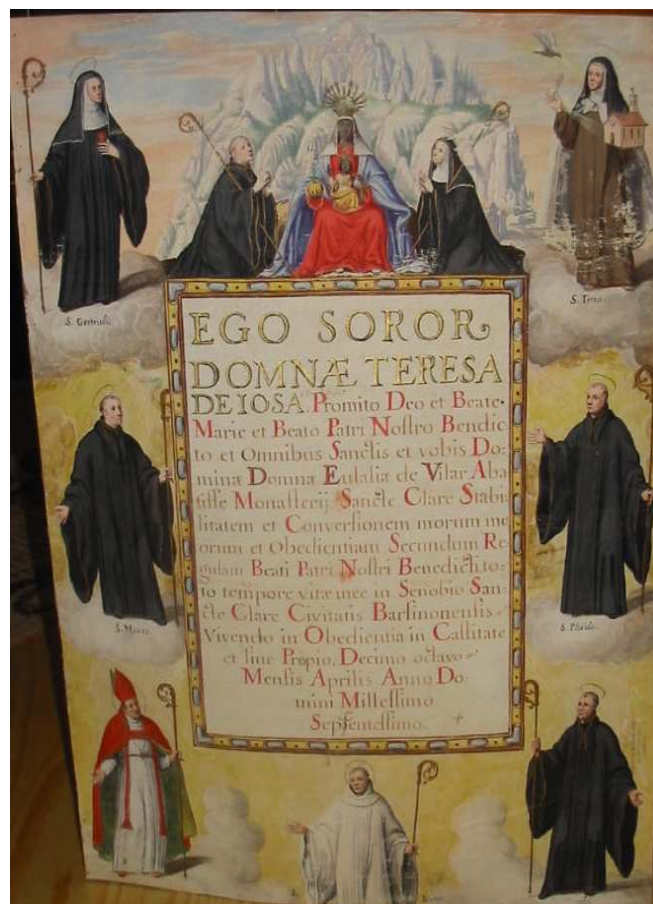 S. Gertrudis
S. Teresa
EGO SOROR
DOMNÆ TERESA
DE IOSA. Promito Deo et Beate
Marie et Beato Patri Nostro Benedic-
to et Omnibus Sanctis et vobis Do-
mina Domna Eulalia de Vilar Aba-
tisse Monasterij Sancte Clare Stabi
litatem et Conversionem morum me
orum et Obedientiam Secundum Re
gulam Beati Patris Nostri Benedicti to-
to tempore vitæ meę in Senobio San-
cte Clare Civitatis Barsinonensis
Vivendo in Obedientia in Castitate
et sine Propio. Decimo octavo
Mensis Aprilis Anno Do-
mini Millessimo
Septentessimo.
S. Mauro
S. Placido